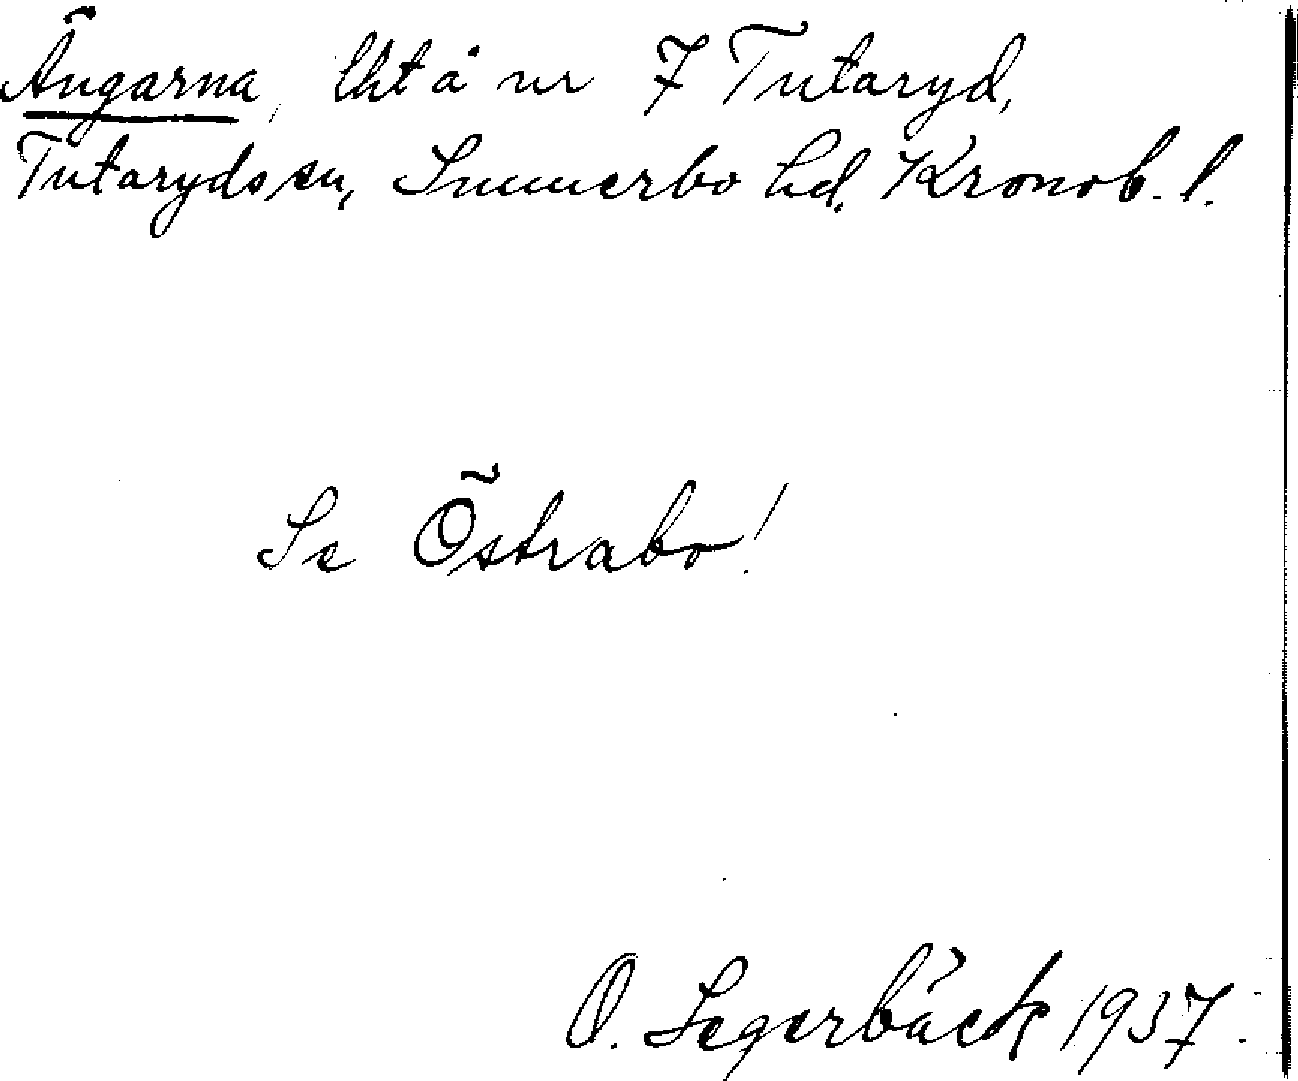 Ängarna, lht å nr 7 Tutaryd,
Tutaryds sn, Sunnerbo hd. Kronob. l.
Se Östrabo!
O. Segerbäck 1937.